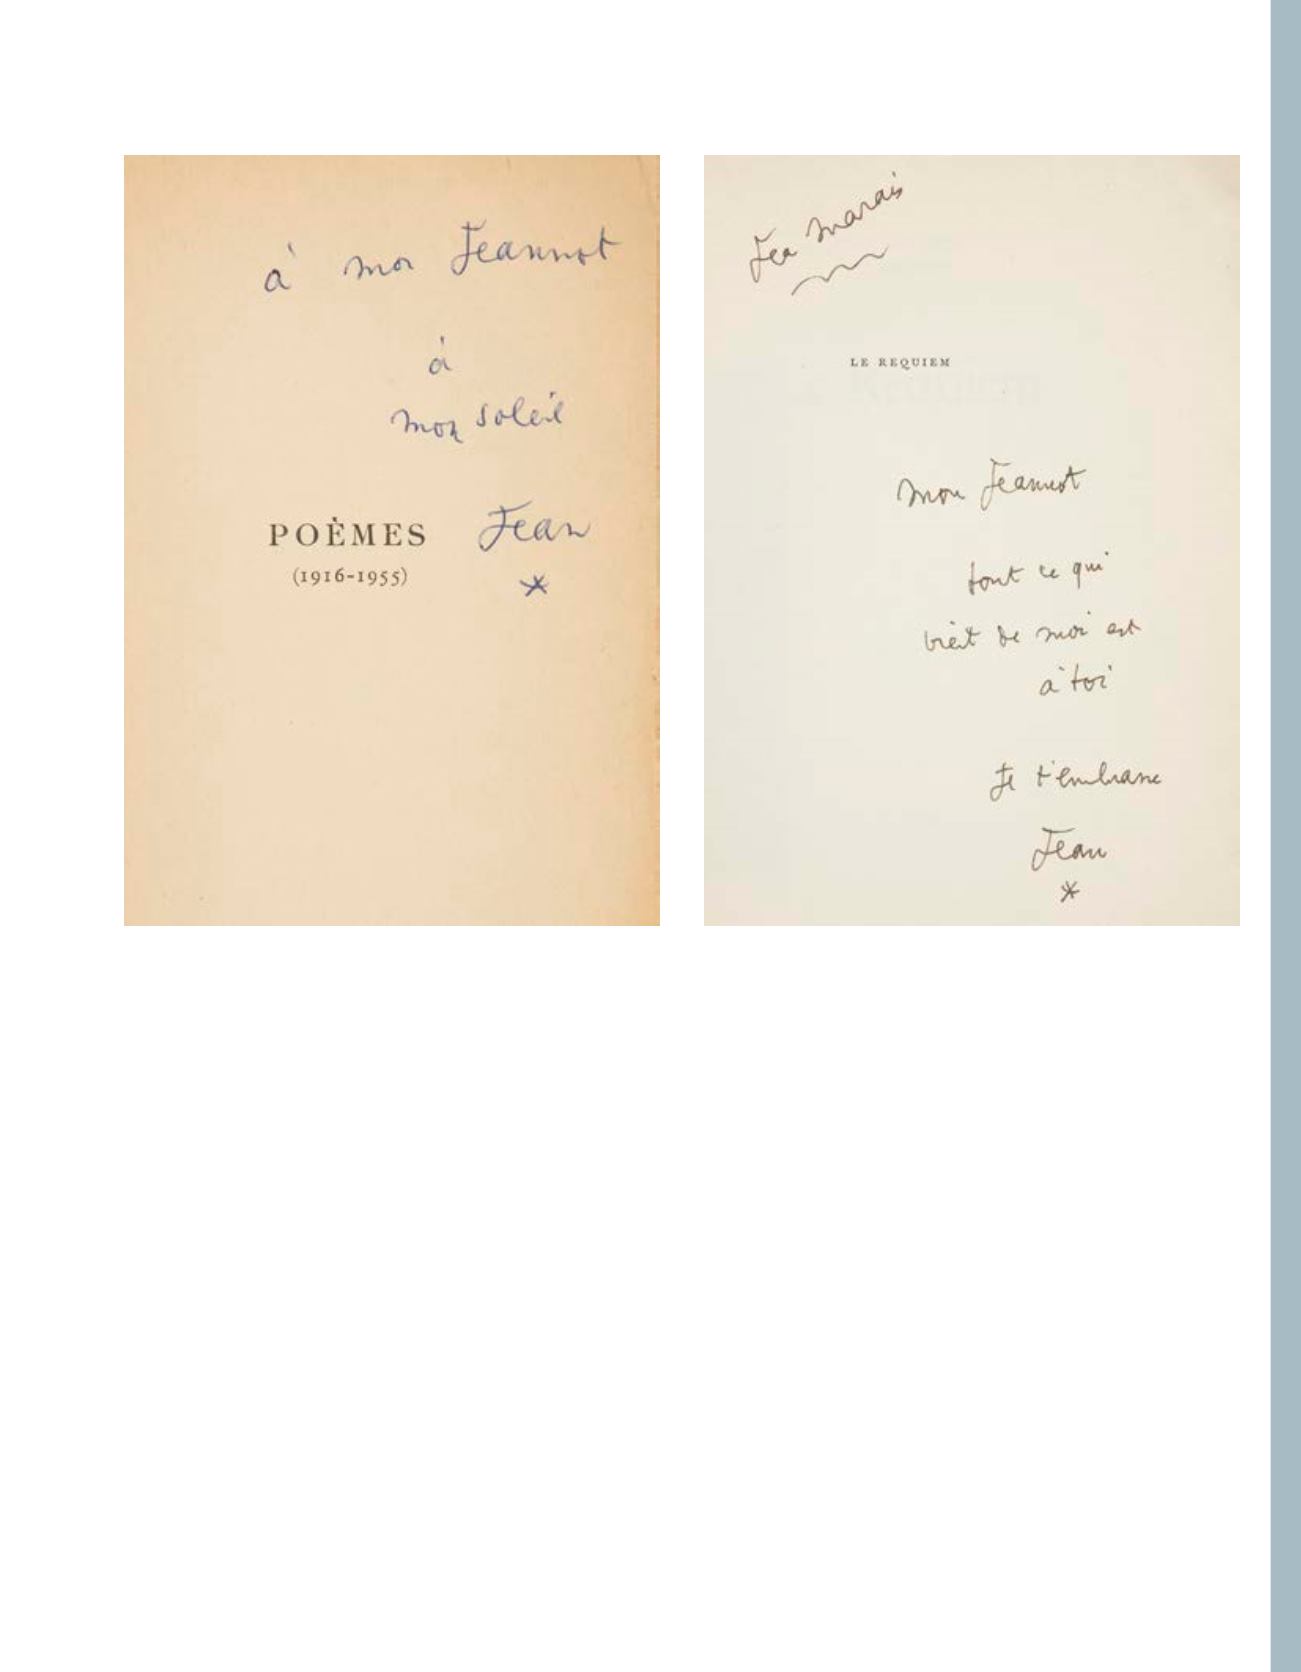 à mon Jeannot
à
mon soleil
Jean
POÈMES
(1916-1955)
Jea Marais
LE REQUIEM
Mon Jeannot
tout ce qui
vient de moi est
à toi
Je t'embrasse
Jean